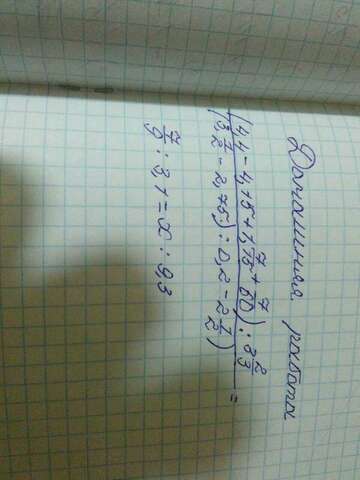 Домашняя работа
(4,4 - 4,15 + 1 7/15 + 7/60) : 3 2/3
(3 1/2 - 2,75) : 0,2 - 2 1/2) =
7/9 : 3,1 = x : 9,3